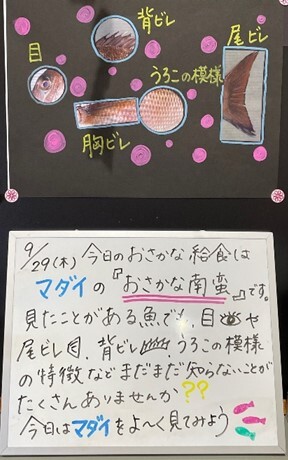 背ビレ
尾ビレ
目
うろこの模様
胸ビレ
9/29(木) 今日のおさかな給食は
マダイの『おさかな南蛮』です。
見たことがある魚でも、目や
尾ビレ、背ビレ うろこの模様
の特徴などまだまだ知らないことが
たくさんありませんか??
今日はマダイをよ〜く見てみよう